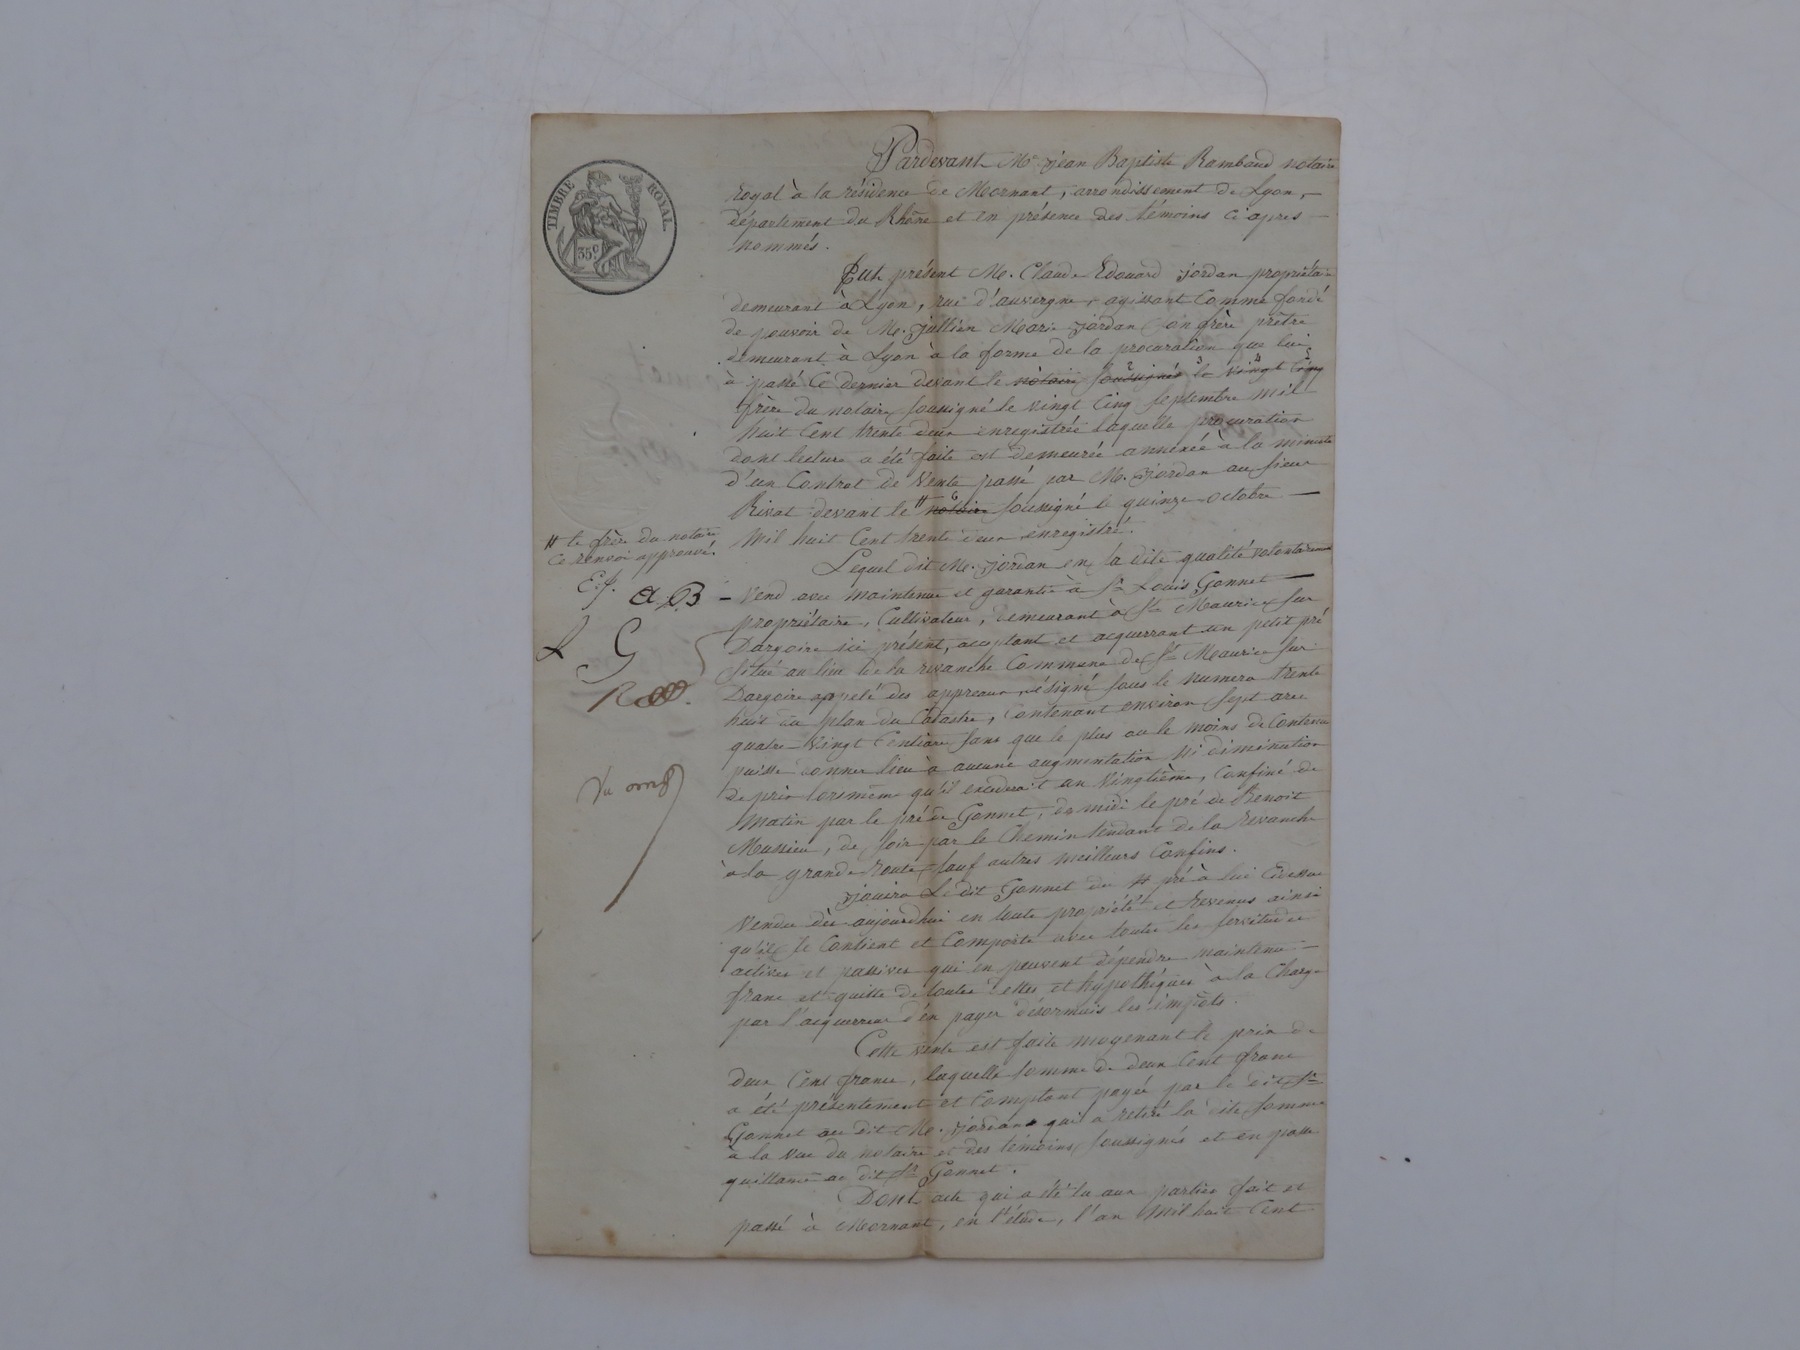 TIMBRE ROYAL
35c
Pardevant Me jean Baptiste Rambaud notaire
royal à la résidence de Mornant, arrondissement de Lyon,
département du Rhône et en présence des témoins ci après
nommés.
Fut présent M. Claude Edouard jordan propriétaire
demeurant à Lyon, rue d'auvergne, agissant comme fondé
de pouvoir de M. jullien Marie jordan son frère prêtre
demeurant à Lyon à la forme de la procuration que lui
à passé ce dernier devant le notaire soussigné le vingt cinq
frère du notaire soussigné le vingt cinq septembre mil
huit cent trente deux enregistrée laquelle procuration
dont lecture a été faite est demeurée annexée à la minute
d'un contrat de vente passé par M. jordan au sieur
Rivat devant le # notaire soussigné le quinze octobre
mil huit cent trente deux enregistré.
# le frère du notaire
ce renvoi approuvé.
E.j.
L G
Lequel dit M. jordan en la dite qualité volontairement
vend avec maintenue et garantie à Sr Louis Gonnet
propriétaire, cultivateur, demeurant à St Maurice sur
Dargoire ici présent, acceptant et acquerrant un petit pré
situé au lieu de la revanche commune de St Maurice sur
Dargoire appelé des appreaux, désigné sous le numero trente
huit au plan du cadastre, contenant environ sept ares
quatre-vingt centiares sans que le plus ou le moins de contenu
puisse donner lieu à aucune augmentation ni diminution
de prix lorsmême qu'il excederait un vingtième, confiné de
matin par le pré de Gonnet, de midi le pré de Benoit
Mussieu, de soir par le chemin tendant de la revanche
à la grande route sauf autres meilleurs confins.
jouira le dit Gonnet du # pré à lui cidessus
vendu dès aujourdhui en toute propriété et revenus ainsi
qu'il se contient et comporte avec toutes les servitudes
actives et passives qui en peuvent dépendre maintenu
franc et quitte de toutes dettes et hypothèques à la charge
par l'acquerreur d'en payer désormais les impôts.
Cette vente est faite moyenant le prix de
deux cent francs, laquelle somme de deux cent francs
a été présentement et comptant payée par le dit Sr
Gonnet au dit M. jordan qui a retiré la dite somme
à la vue du notaire et des témoins soussignés et en passe
quittance au dit Sr Gonnet.
Dont acte qui a été lu aux parties fait et
passé à Mornant, en l'étude, l'an mil huit cent